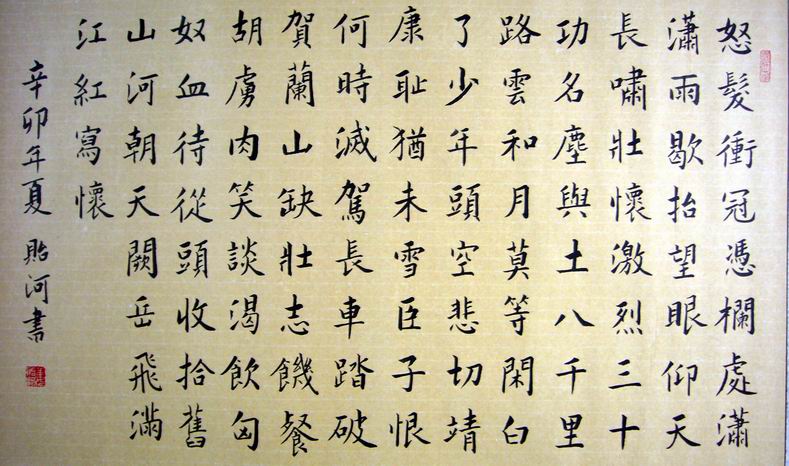 怒髮衝冠憑欄處瀟
瀟雨歇抬望眼仰天
長嘯壯懷激烈三十
功名塵與土八千里
路雲和月莫等閑白
了少年頭空悲切靖
康恥猶未雪臣子恨
何時滅駕長車踏破
賀蘭山缺壯志饑餐
胡虜肉笑談渴飲匈
奴血待從頭收拾舊
山河朝天闕岳飛滿
江紅寫懷
辛卯年夏貽河書